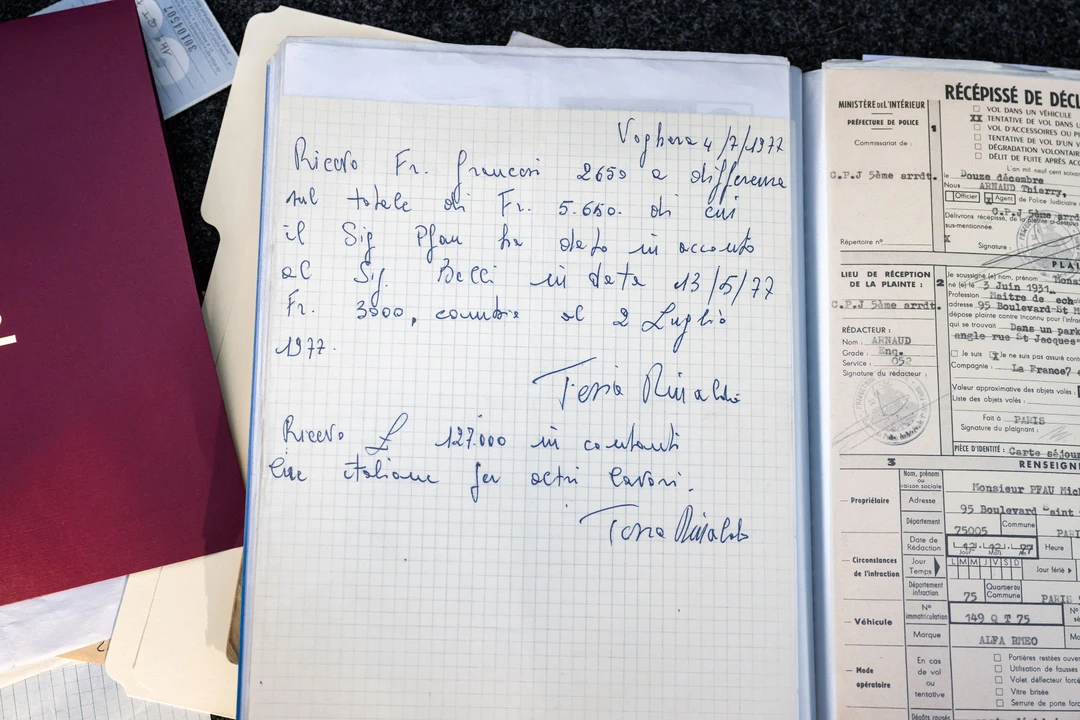 30104507
Voghera 4/7/1977
Ricevo Fr. francesi 2650 a differenza
sul totale di Fr. 5.650. di cui
il Sig Pfau ha dato in acconto
al Sig. Belli in data 13/5/77
Fr. 3000, cambio al 2 Luglio
1977.
Rinaldo
Ricevo £ 127.000 in contanti
lire italiane per altri lavori.
Rinaldo
RÉCÉPISSÉ DE DÉCL
MINISTÈRE DE L'INTÉRIEUR
PRÉFECTURE DE POLICE
Commissariat de :
C.P.J 5ème arrdt.
Répertoire n°
1
VOL DANS UN VÉHICULE
XX TENTATIVE DE VOL DANS U
VOL D'ACCESSOIRES OU P
TENTATIVE DE VOL D'UN V
DÉGRADATION VOLONTAIR
DÉLIT DE FUITE APRÈS AC
L'an mil neuf cent soixan
le Douze décembre
Nous ARNAUD Thierry,
Officier X Agent de Police Judiciaire
C.P.J 5ème arrd
Délivrons récépissé, de la plainte ci-dessou
sus-mentionnée.
X
Signature :
PLAI
LIEU DE RÉCEPTION
DE LA PLAINTE :
C.P.J 5ème arrdt.
RÉDACTEUR :
Nom : ARNAUD
Grade : Enq.
Service : 052
Signature du rédacteur :
2
Je soussigné (e) nom, prénom Mons
né (e) le 3 Juin 1931.
Profession Maitre de
adresse 95 Boulevard St M
dépose plainte contre inconnu pour l'infra
qui se trouvait Dans un park
angle rue St Jacques
Je suis X Je ne suis pas assuré cont
Compagnie : La France?
Valeur approximative des objets volés :
Liste des objets volés :
Fait à PARIS
Signature du plaignant :
PIÈCE D'IDENTITÉ : Carte séjou
3 RENSEIGN
Propriétaire
Nom, prénom
ou
raison sociale
Monsieur PFAU Mich
Adresse
95 Boulevard Saint
Département
75005
Commune
PARI
Circonstances
de l'infraction
Date de
Rédaction
12 12 77
Jour Mois An
Heure
Jour
Temps
L M M J V S D
Jour férié
Département
infraction
75
Quartier ou
Commune
PARIS
Véhicule
N°
immatriculation
149 Q T 75
N°
Marque
ALFA RMEO
Mode
opératoire
En cas
de vol
ou
tentative
Portières restées ouve
Utilisation de fausses
Volet déflecteur forcé
Vitre brisée
Serrure de porte forc